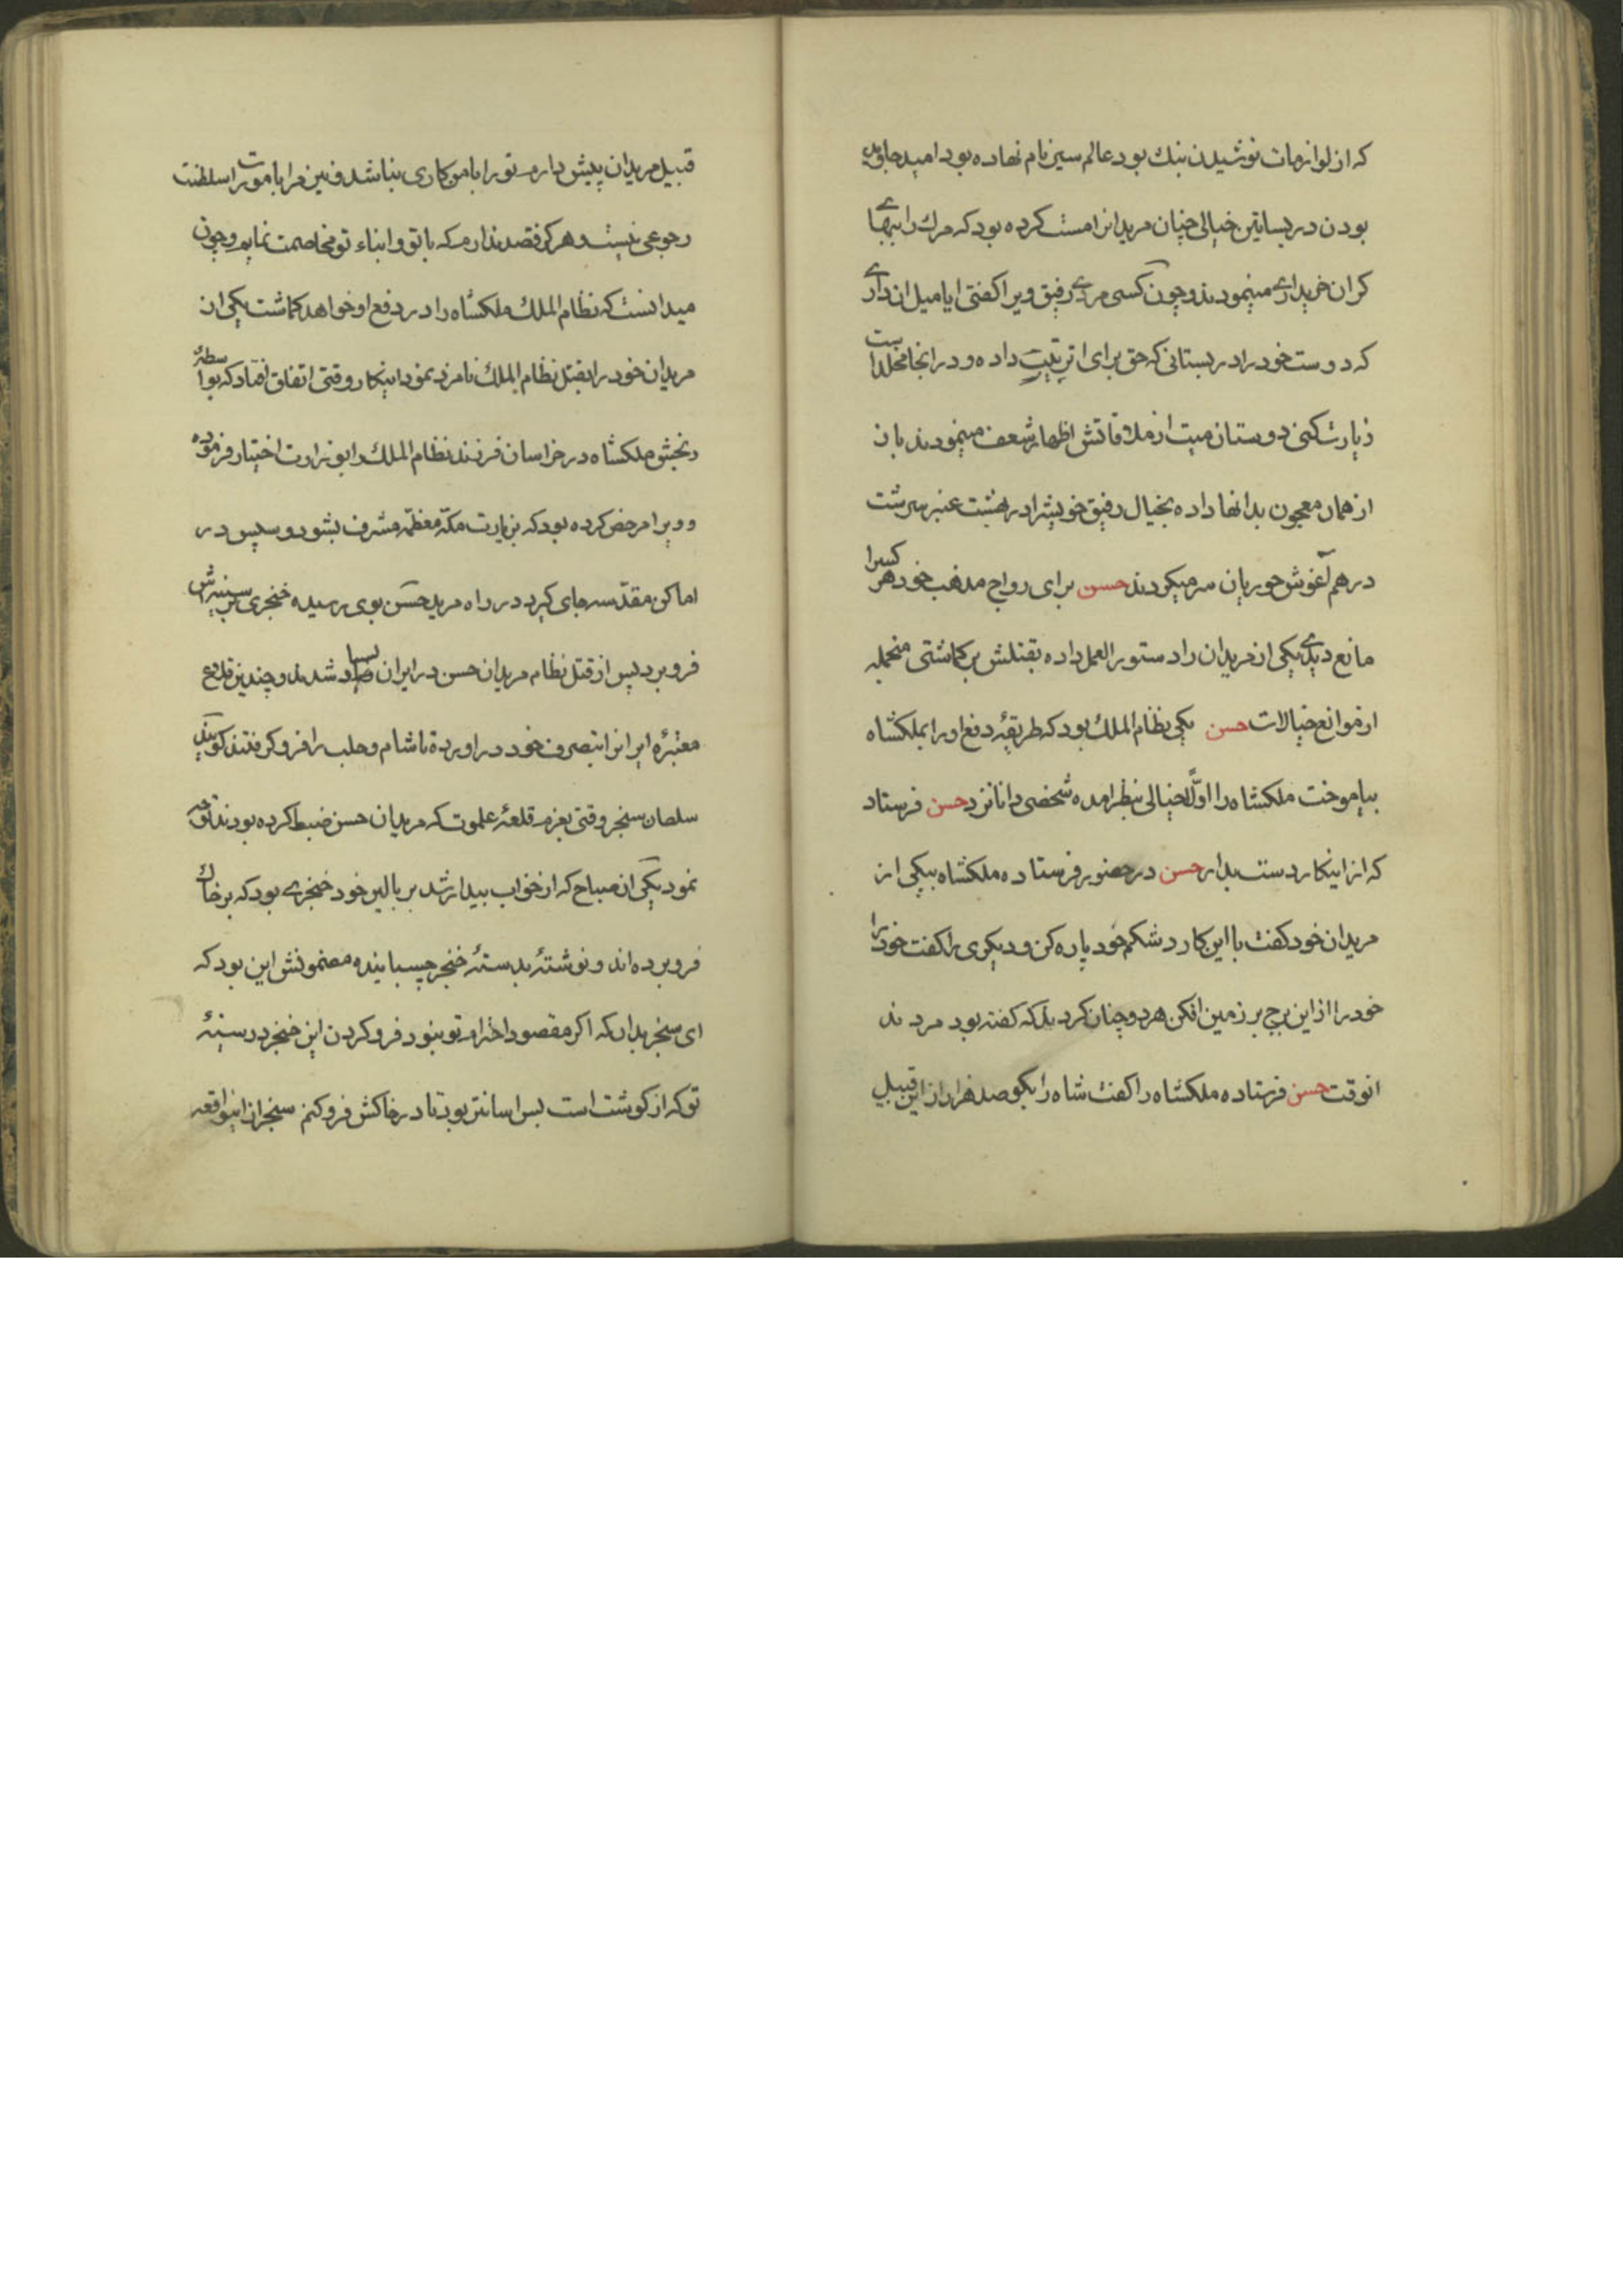 که از لوازمات نوشیدن بنك بود عالم سین نام نهاده بود امید جاوید
بودن در بساتین خیالی چنان مریدانرا مست کرده بود که مرك را ببهای
کران خریداری مینمودند و چون کسی مردی رفیق ویرا کفتی ایا میل ان داری
که دوست خود را در بستانی که حق برای او ترتیب داده و در انجا مخلد است
زیارت کنی دوستان میت از ملاقاتش اظهار شعف مینمودند باز
از همان معجون بدانها داده بخیال رفیق خویش را در بهشت عنبر سرشت
در هم آغوش حوریان سر میکردند حسن برای رواج مذهب خود هر کسرا
مانع دیدی یکی از مریدان را دستور العمل داده بقتلش بر کماشتی منجمله
از موانع خیالات حسن یکی نظام الملك بود که طریقهٔ دفع او را بملکشاه
بیاموخت ملکشاه را اولاً خیالی بنظر امده شخصی دانا نزد حسن فرستاد
که از اینکار دست بدار حسن در حضور فرستاده ملکشاه بیکی از
مریدان خود کفت با این کارد شکم خود پاره کن و دیکری را کفت خود را
خود را از این برج بر زمین افکن هر دو چنان کردند که کفته بود مردند
انوقت حسن فرستاده ملکشاه را کفت شاه را بکو صد هزار از این قبیل
قبیل مریدان پیش دارم تو را با من کاری نباشد و نیز مرا با مورات سلطنت
رجوعی نیست و هرکز قصد ندارم که با تو و ابناء تو مخاصمت نمایم و چون
میدانست که نظام الملك ملکشاه را در دفع او خواهد کماشت یکی از
مریدان خود را بقتل نظام الملك نامزد نمود اینکار وقتی اتفاق افتاد که بواسطهٔ
رنجش ملکشاه در خراسان فرزند نظام الملك را بوزارت اختیار فرموده
و ویرا مرخص کرده بود که بزیارت مکّه معظمّه مشرف بشود و سپس در
اماکن مقدّسه جای کیرد در راه مرید حسن بوی رسیده خنجری بر سینه‌اش
فرو برد پس از قتل نظام مریدان حسن در ایران بسیار شدند و چندین قلاع
معتبرهٔ ایرانرا بتصرف خود در اورده تا شام و حلب را فرو کرفتند کویند
سلطان سنجر وقتی بعزم قلعهٔ علموت که مریدان حسن ضبط کرده بودند توجه
نمود یکی از صباح که از خواب بیدار شد بر بالین خود خنجری بود که بر خاك
فرو برده‌اند و نوشتهٔ بدستهٔ خنجر چسبانیده مضمونش این بود که
ای سنجر بدان که اکر مقصود احترام تو نبود فرو کردن این خنجر در سینهٔ
تو که از کوشت است بس اسانتر بود تا در خاکش فرو کنم سنجر از اینواقعه